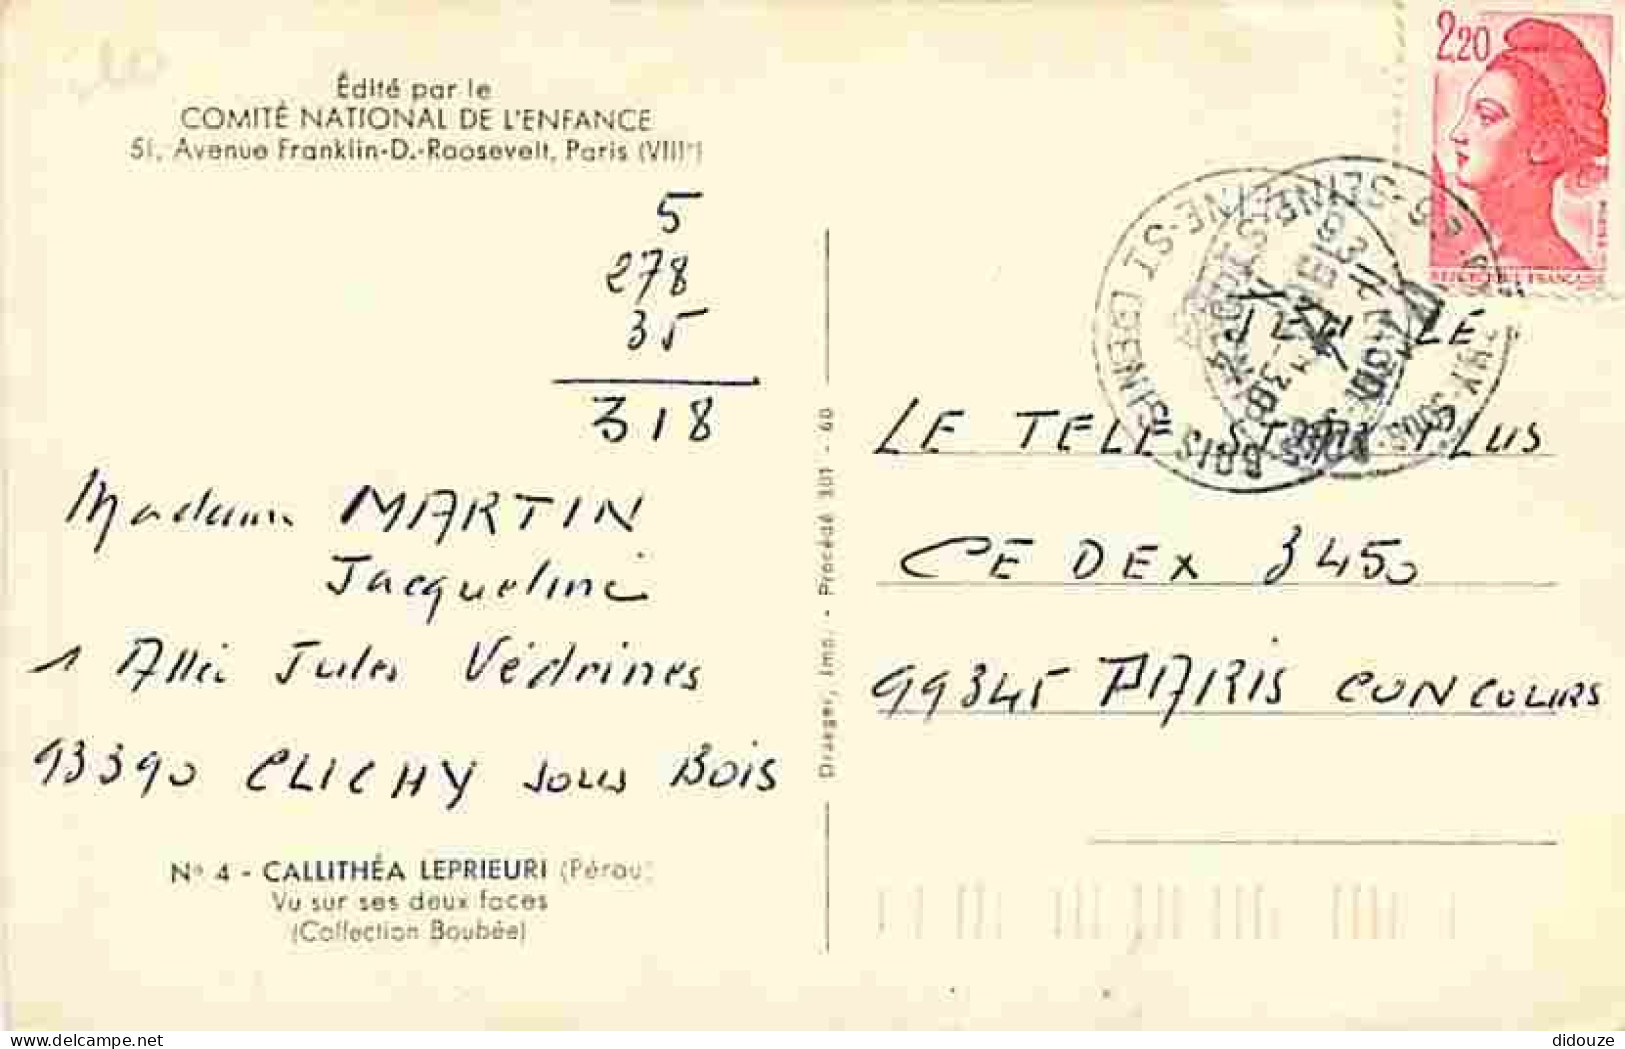 Édité par le
COMITÉ NATIONAL DE L'ENFANCE
51, Avenue Franklin-D.-Roosevelt, Paris (VIIIe)
5
278
35
318
Madame MARTIN
Jacqueline
1 Allée Jules Védrines
93390 CLICHY sous BOIS
N° 4 - CALLITHÉA LEPRIEURI (Pérou)
Vu sur ses deux faces
(Collection Boubée)
Draeger, Imp. - Procédé 301 - 60
2,20
JEU LE
LE TELE STAR PLUS
CEDEX 3450
99345 PARIS CONCOURS
SEINE-ST DENIS
CLICHY-SOUS-BOIS
didouze